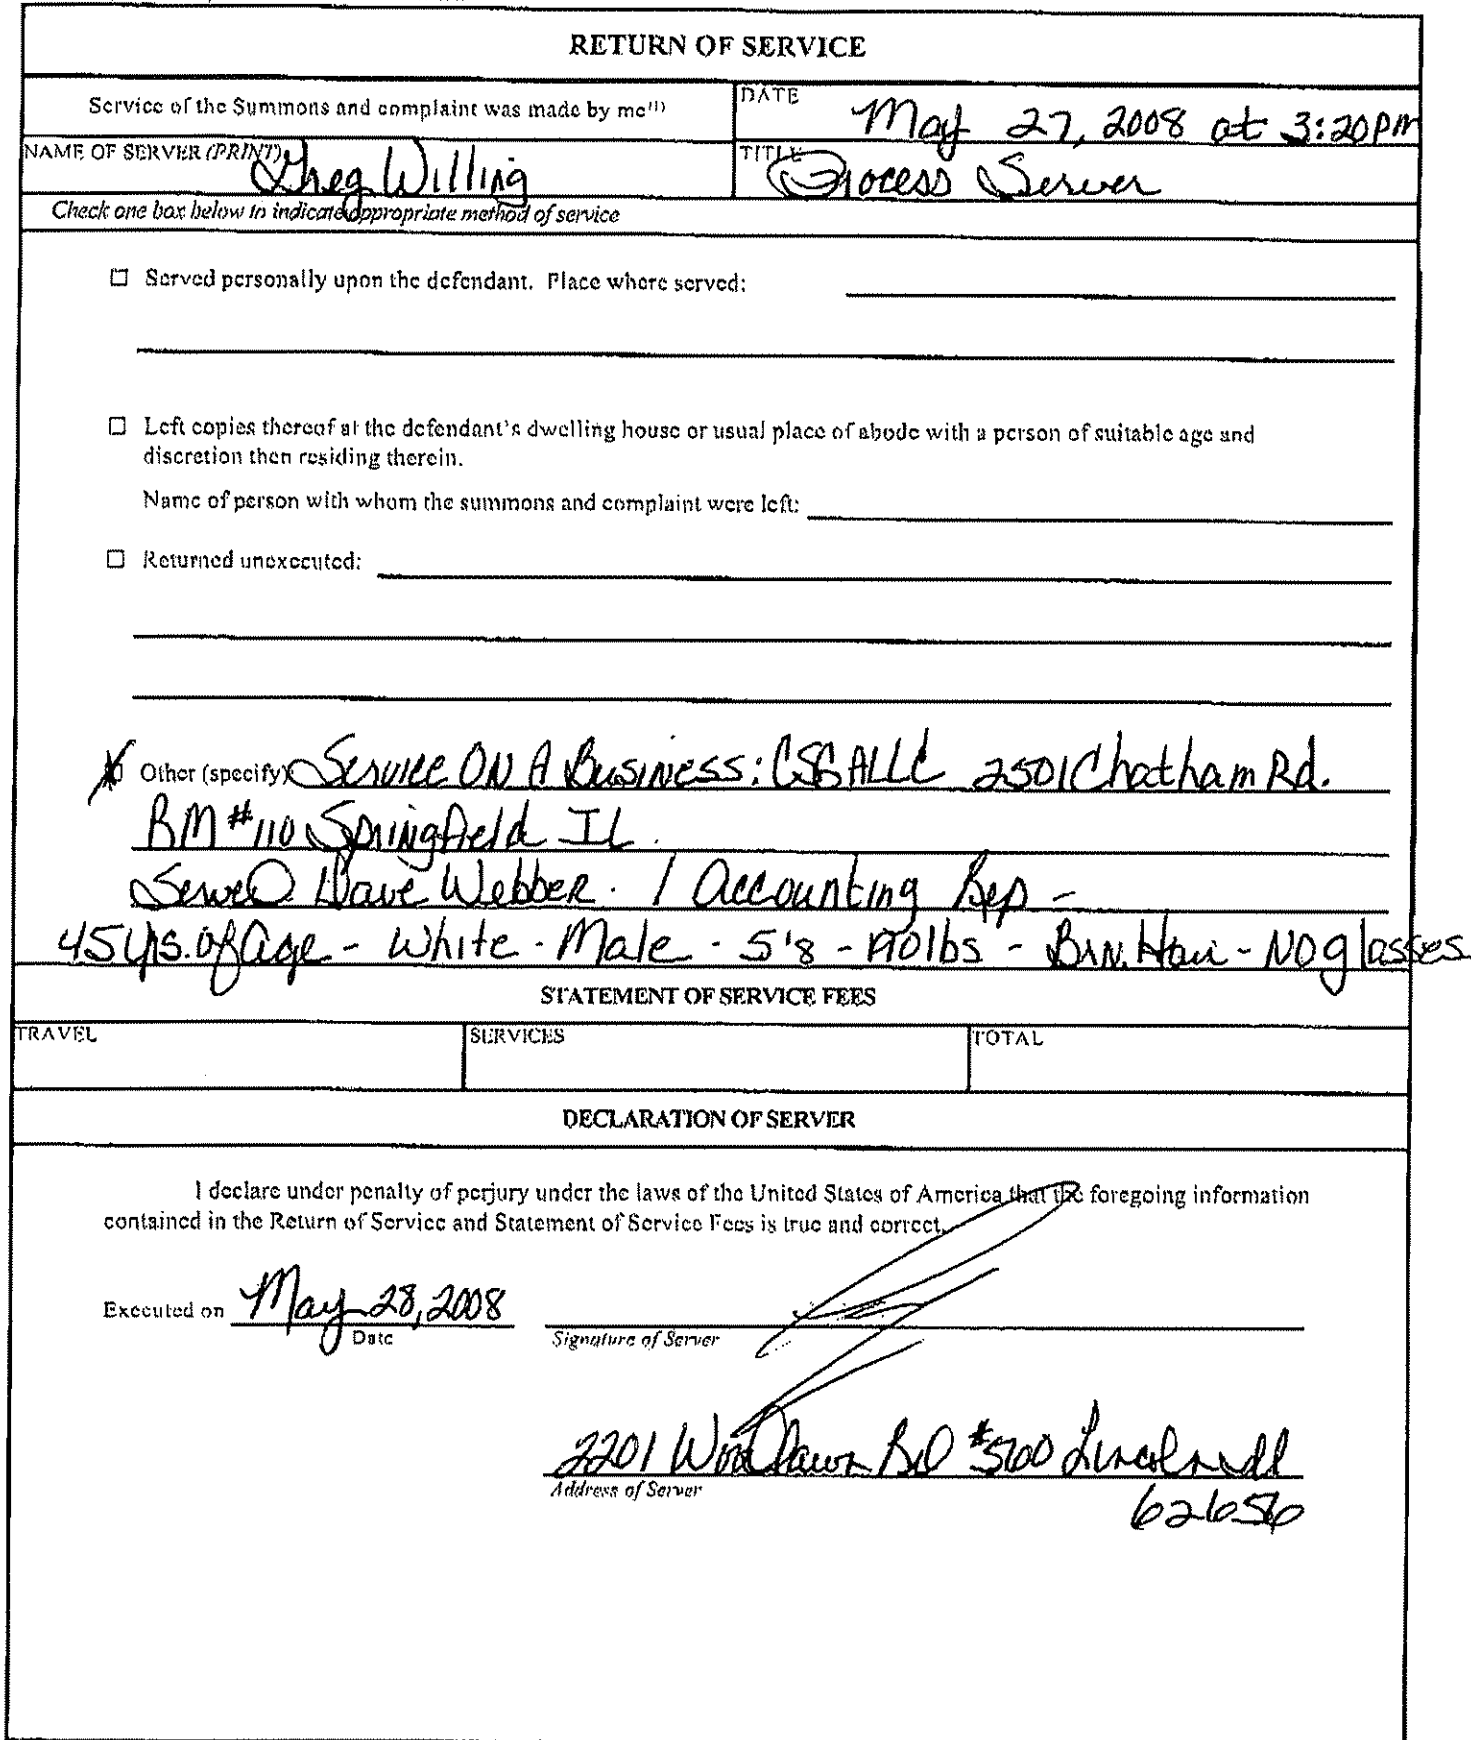 RETURN OF SERVICE
Service of the Summons and complaint was made by me(1)
DATE
May 27, 2008 at 3:20PM
NAME OF SERVER (PRINT)
Greg Willing
TITLE
Process Server
Check one box below to indicate appropriate method of service
☐ Served personally upon the defendant. Place where served:
☐ Left copies thereof at the defendant's dwelling house or usual place of abode with a person of suitable age and
discretion then residing therein.
Name of person with whom the summons and complaint were left:
☐ Returned unexecuted:
Other (specify) Service ON A Business: CSG ALLC 2501 Chatham Rd.
RM #110 Springfield IL.
Served Dave Webber. / Accounting Rep -
45 yrs. of age - White - Male - 5'8 - lbs - Brn. Hair - NO glasses
STATEMENT OF SERVICE FEES
TRAVEL
SERVICES
TOTAL
DECLARATION OF SERVER
I declare under penalty of perjury under the laws of the United States of America that the foregoing information
contained in the Return of Service and Statement of Service Fees is true and correct.
Executed on May 28, 2008
Date
Signature of Server
2201 Woodlawn Rd #500 Lincoln Il
Address of Server
62656